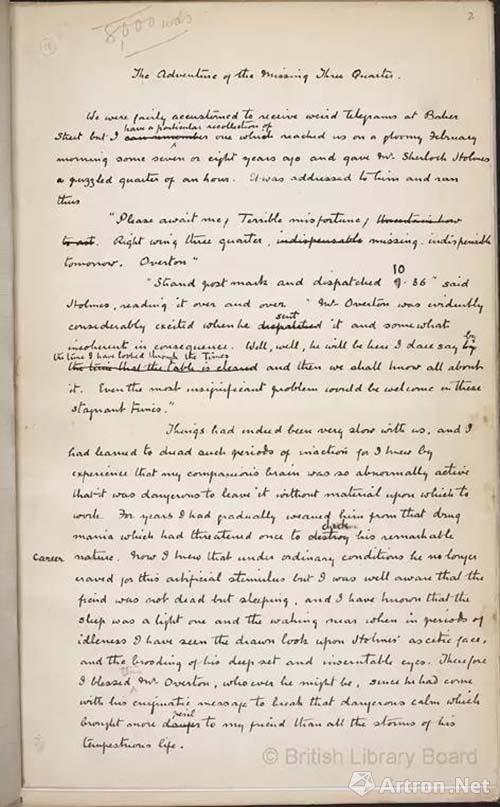 2
8000 wds
The Adventure of the Missing Three Quarter.
We were fairly accustomed to receive weird telegrams at Baker
have a particular recollection of
Street but I can remember one which reached us on a gloomy February
morning some seven or eight years ago and gave Mr. Sherlock Holmes
a puzzled quarter of an hour. It was addressed to him and ran
thus
"Please await me, Terrible misfortune, Uncertain how
to act. Right wing three quarter, indispensable missing. indispensable
tomorrow. Overton"
10
"Strand post mark and dispatched 9.36" said
Holmes, reading it over and over. "Mr Overton was evidently
sent
considerably excited when he dispatched it and somewhat
incoherent in consequence. Well, well, he will be here I dare say by
the time I have looked through the Times
the time that the table is cleared and then we shall know all about
it. Even the most insignificant problem would be welcome in these
stagnant times."
Things had indeed been very slow with us, and I
had learned to dread such periods of inaction for I knew by
experience that my companion's brain was so abnormally active
that it was dangerous to leave it without material upon which to
work. For years I had gradually weaned him from that drug
check
mania which had threatened once to destroy his remarkable
career nature. Now I knew that under ordinary conditions he no longer
craved for this artificial stimulus but I was well aware that the
fiend was not dead but sleeping, and I have known that the
sleep was a light one and the waking near when in periods of
idleness I have seen the drawn look upon Holmes' ascetic face,
and the brooding of his deep set and inscrutable eyes. Therefore
this
I blessed Mr. Overton, whoever he might be, since he had come
with his enigmatic message to break that dangerous calm which
peril
brought more danger to my friend than all the storms of his
tempestuous life.
© British Library Board
Artron.Net